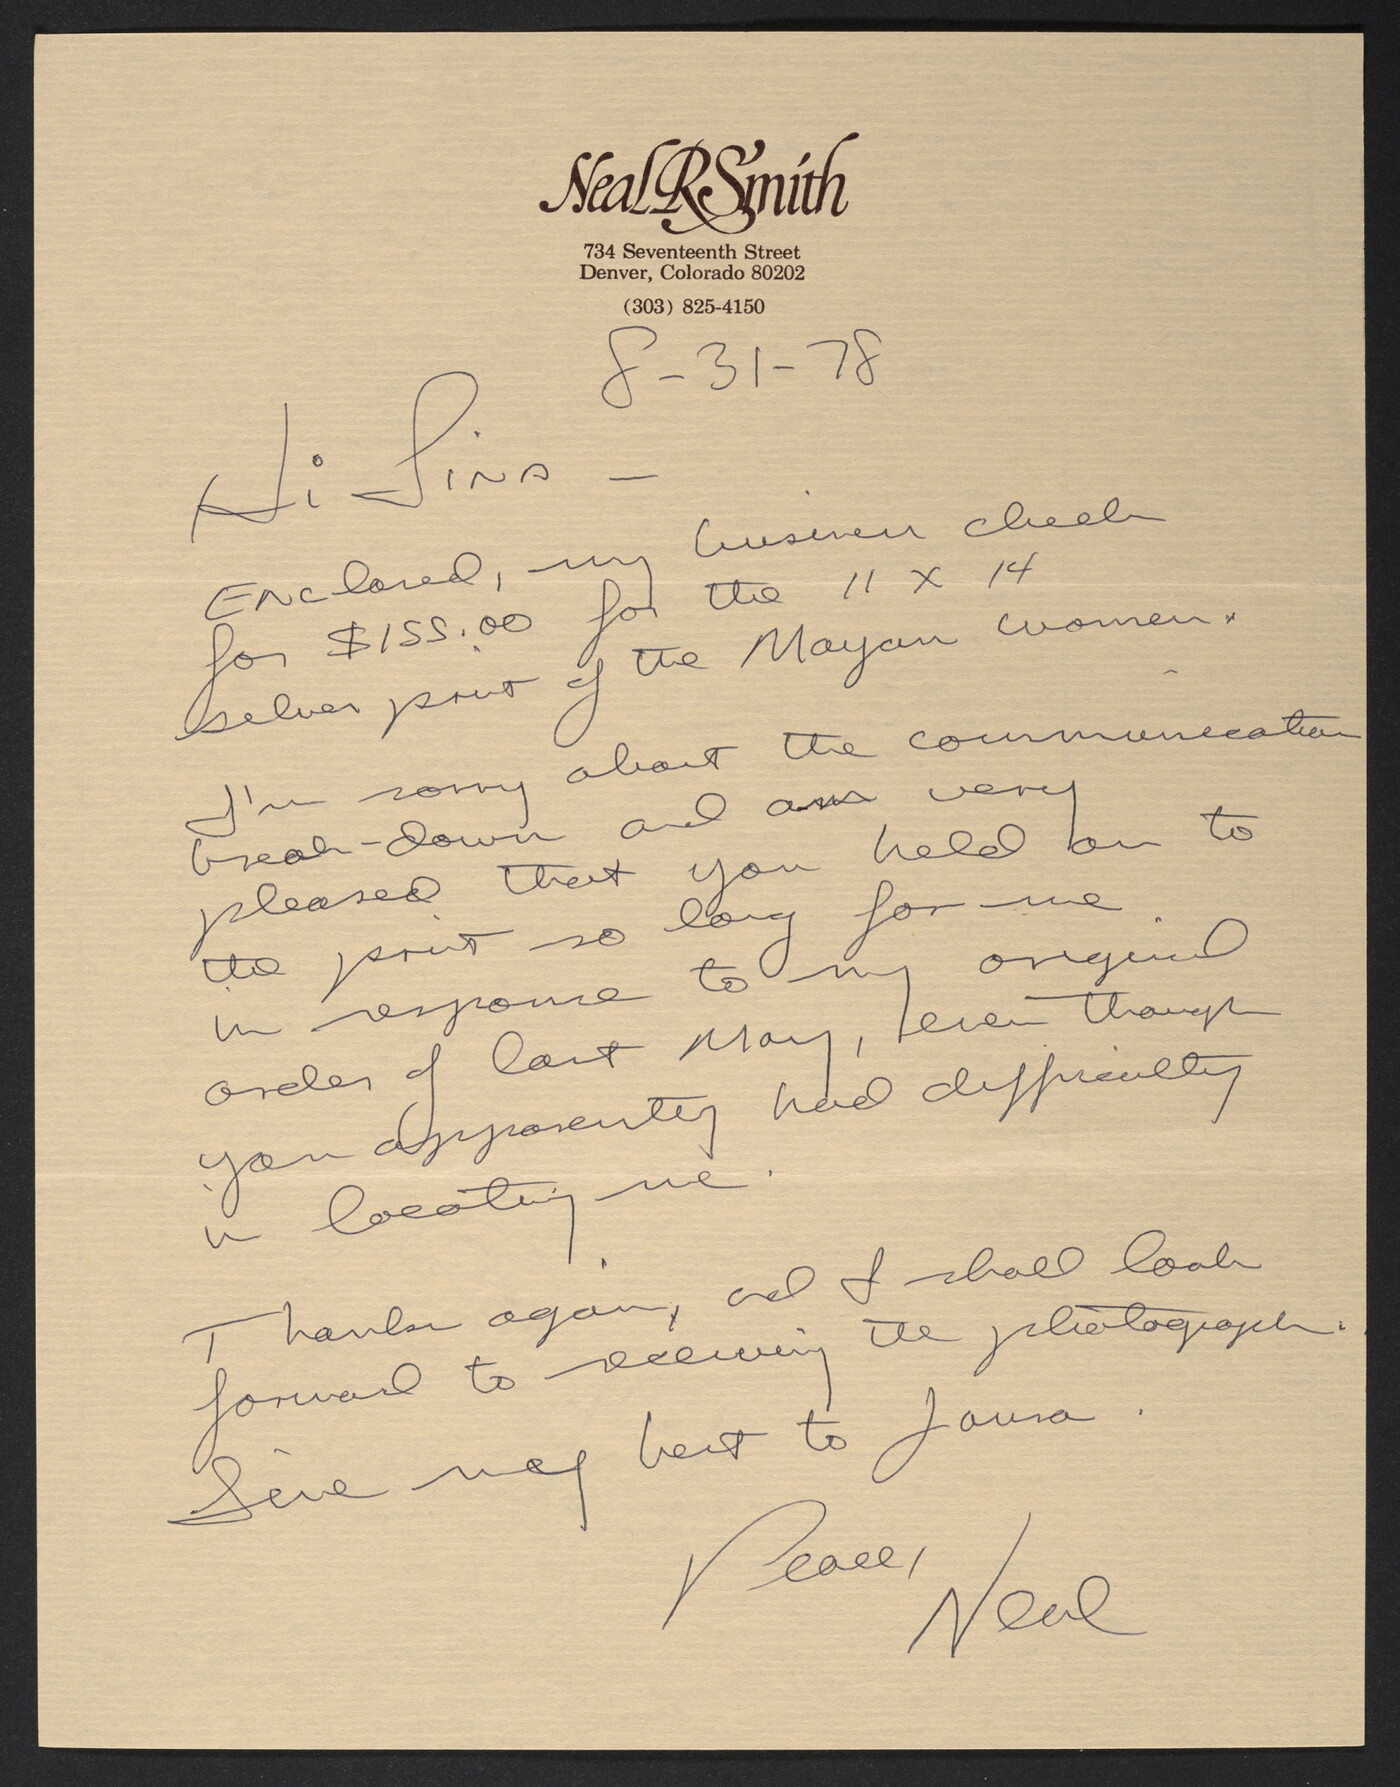 Neal R Smith
734 Seventeenth Street
Denver, Colorado 80202
(303) 825-4150
8-31-78
Hi Gina —
Enclosed, my business check
for $155.00 for the 11 x 14
silver print of the Mayan women.
I'm sorry about the communication
break-down and am very
pleased that you held on to
the print so long for me
in response to my original
order of last May, even though
you apparently had difficulty
in locating me.
Thanks again, and I shall look
forward to receiving the photograph.
Give my best to Laura.
Peace,
Neal